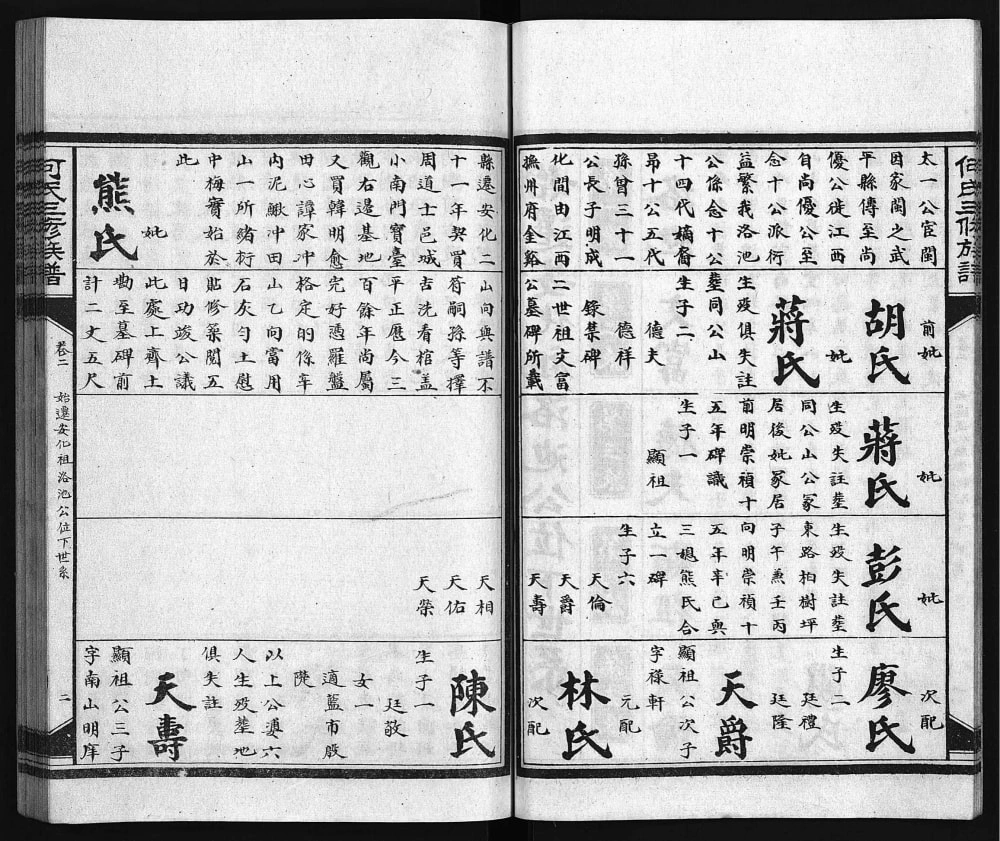 何氏三修族譜
太一公宦閩
因家閩之武
平縣傳至尚
優公徙江西
自尚優公至
念十公派衍
益繁我洛池
公係念十公
十四代嫡裔
昂十公五代
孫曾三十一
公長子明成
化間由江西
撫州府金谿
前妣
胡氏
妣
蔣氏
生歿俱失註
塟同公山
生子二
德夫
德祥
錄集碑
二世祖文富
公墓碑所載
妣
蔣氏
生歿失註塟
同公山公冢
居後妣冢居
前明崇禎十
五年碑識
生子一
顯祖
妣
彭氏
生歿失註塟
東路柏樹坪
子午兼壬丙
向明崇禎十
五年辛巳與
三媳熊氏合
立一碑
生子六
天倫
天爵
天壽
次配
廖氏
生子二
廷禮
廷隆
天爵
顯祖公次子
字祿軒
元配
林氏
次配
縣遷安化二
十一年契買
周道士邑城
小南門寶臺
觀右邊基地
又買韓明愈
田心譚家冲
内泥鰍冲田
山一所緒衍
中梅實始於
此
妣
熊氏
山向與譜不
符嗣孫等擇
吉洗看棺盖
平正歷今三
百餘年尚屬
完好憑羅盤
格定的係辛
山乙向當用
石灰勻土慰
貼修築閲五
日功竣公議
此處上齊土
墈至墓碑前
計二丈五尺
天相
天佑
天榮
陳氏
生子一
廷敬
女一
適藍市殷
以上公婆六
人生歿塟地
俱失註
天壽
顯祖公三子
字南山明庠
何氏三修族譜
卷二
始遷安化祖洛池公位下世系
二